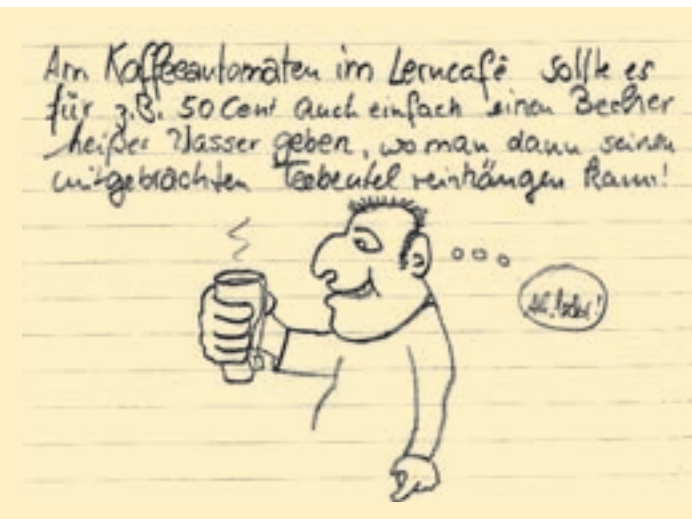 Am Kaffeeautomaten im Lerncafé sollte es
für z.B. 50 Cent auch einfach einen Becher
heißes Wasser geben, wo man dann seinen
mitgebrachten Teebeutel reinhängen kann!
Ah,